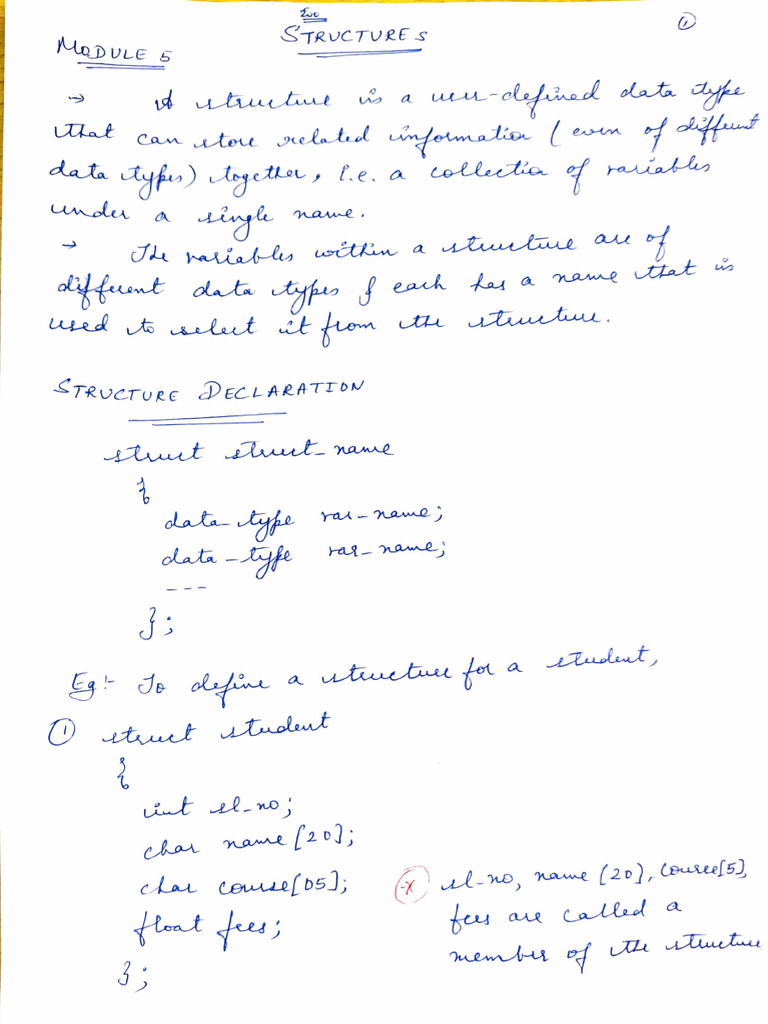 STRUCTURES
①
MODULE 5
→ A structure is a user-defined data type
that can store related information (even of different
data types) together, i.e. a collection of variables
under a single name.
→ The variables within a structure are of
different data types & each has a name that is
used to select it from the structure.
STRUCTURE DECLARATION
struct struct_name
{
data_type var_name;
data_type var_name;
---
};
Eg:- To define a structure for a student,
① struct student
{
int sl_no;
char name [20];
char course[05];
float fees;
};
* sl-no, name [20], course[5],
fees are called a
member of the structure